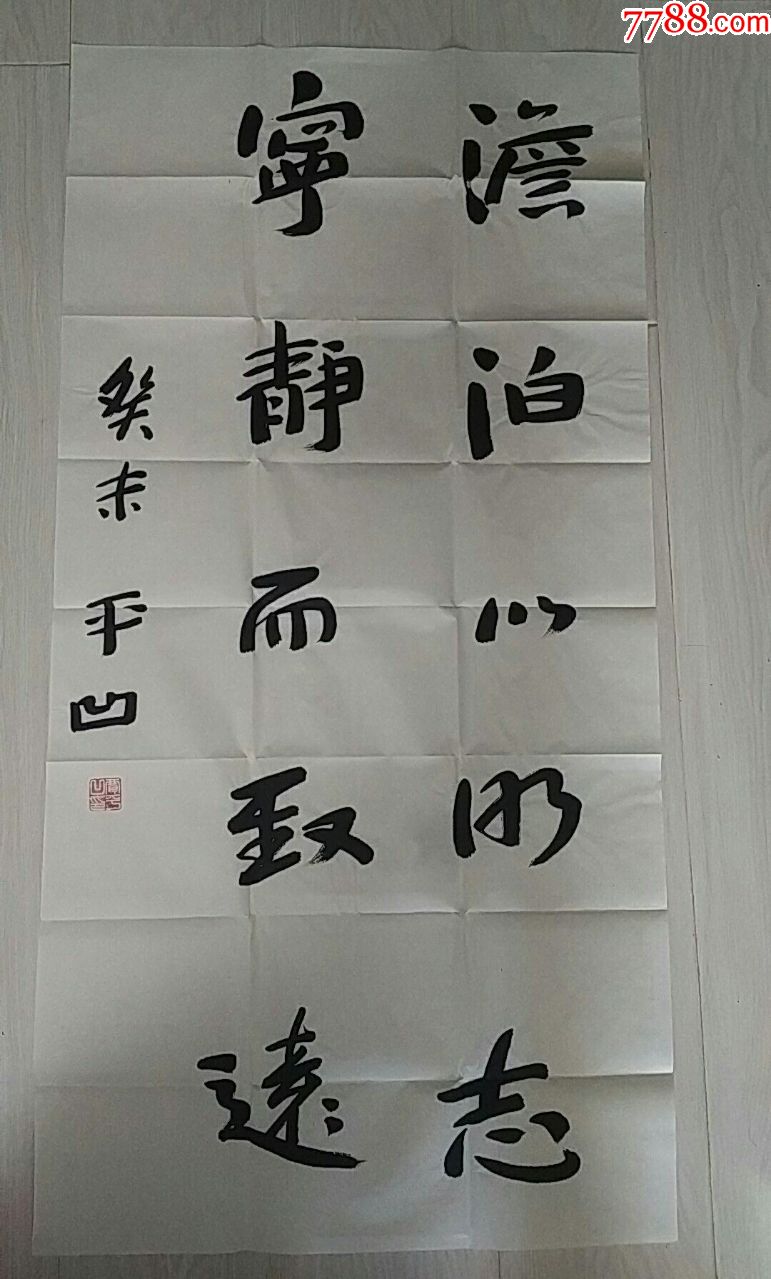 7788.com
澹泊以明志
寧靜而致遠
癸未 平凹